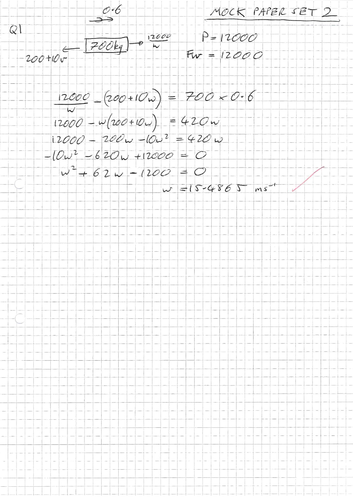 0.6
MOCK PAPER SET 2
Q1
200+10w 700kg 12000/w
P = 12000
Fw = 12000
12000/w - (200+10w) = 700 × 0.6
12000 - w(200+10w) = 420w
12000 - 200w - 10w² = 420w
-10w² - 620w + 12000 = 0
w² + 62w - 1200 = 0
w = 15.4865 ms⁻¹